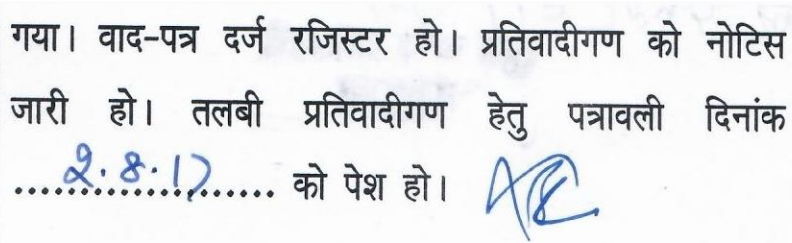 गया। वाद-पत्र दर्ज रजिस्टर हो। प्रतिवादीगण को नोटिस
जारी हो। तलबी प्रतिवादीगण हेतु पत्रावली दिनांक
2.8.17 को पेश हो।